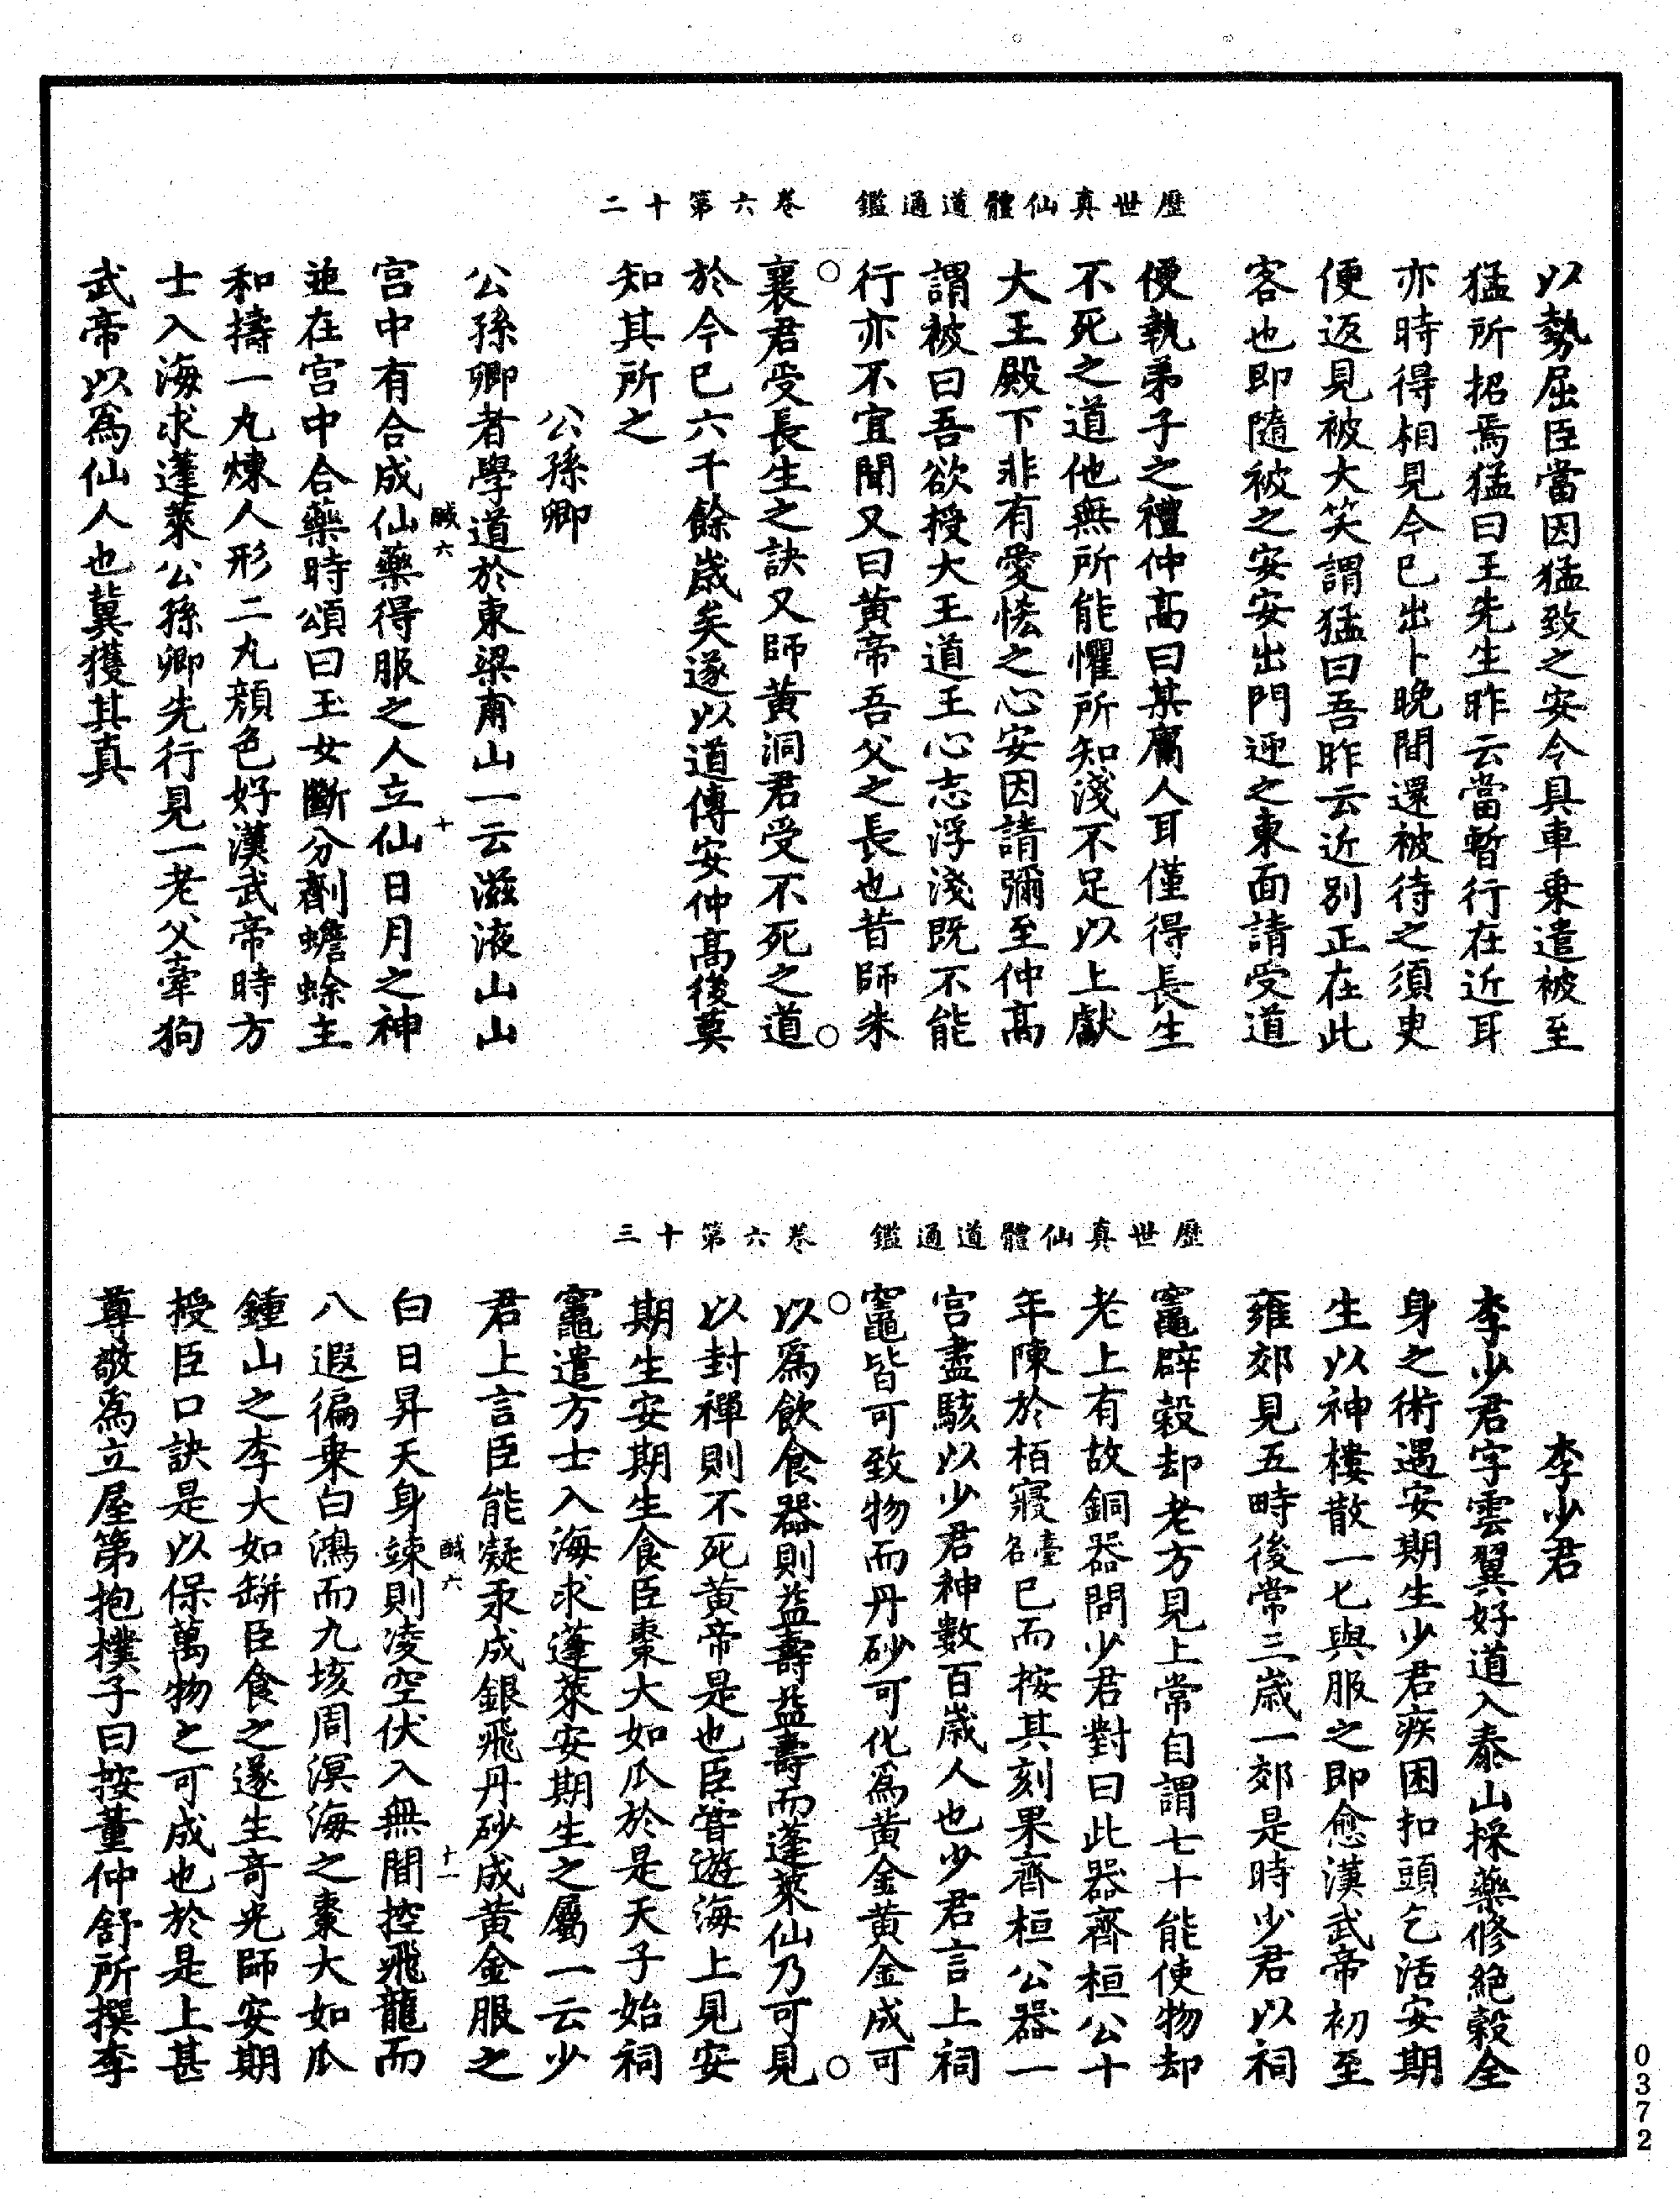 歷世真仙體道通鑑　卷六第十二
以勢屈臣當因猛致之安令具車乗遣被至
猛所招焉猛曰王先生昨云當暫行在近耳
亦時得相見今已出卜晚間還被待之須臾
便返見被大笑謂猛曰吾昨云近別正在此
客也即隨被之安安出門迎之東面請受道
便執弟子之禮仲高曰某屬人耳僅得長生
不死之道他無所能懼所知淺不足以上獻
大王殿下非有愛恡之心安因請彌至仲高
謂被曰吾欲授大王道王心志浮淺既不能
行亦不宜聞又曰黃帝吾父之長也昔師朱
襄君受長生之訣又師黃洞君受不死之道
於今已六千餘歲矣遂以道傳安仲高後莫
知其所之
公孫卿
公孫卿者學道於東梁甫山一云滋液山山
鹹六　十
宮中有合成仙藥得服之人立仙日月之神
並在宮中合藥時頌曰玉女斷分劑蟾蜍主
和擣一丸煉人形二丸顏色好漢武帝時方
士入海求蓬萊公孫卿先行見一老父牽狗
武帝以為仙人也冀獲其真
歷世真仙體道通鑑　卷六第十三
李少君
李少君字雲翼好道入泰山採藥修絕穀全
身之術遇安期生少君疾困扣頭乞活安期
生以神樓散一匕與服之即愈漢武帝初至
雍郊見五畤後常三歲一郊是時少君以祠
竈辟穀却老方見上常自謂七十能使物却
老上有故銅器問少君對曰此器齊桓公十
年陳於栢寢臺名已而按其刻果齊桓公器一
宮盡駭以少君神數百歲人也少君言上祠
竈皆可致物而丹砂可化為黃金黃金成可
以為飲食器則益壽益壽而蓬萊仙乃可見
以封禪則不死黃帝是也臣嘗遊海上見安
期生安期生食臣棗大如瓜於是天子始祠
竈遣方士入海求蓬萊安期生之屬一云少
君上言臣能凝汞成銀飛丹砂成黃金服之
鹹六　十一
白日昇天身竦則凌空伏入無間控飛龍而
八遐徧乗白鴻而九垓周溟海之棗大如瓜
鍾山之李大如缾臣食之遂生奇光師安期
授臣口訣是以保萬物之可成也於是上甚
尊敬為立屋第抱樸子曰按董仲舒所撰李
0372